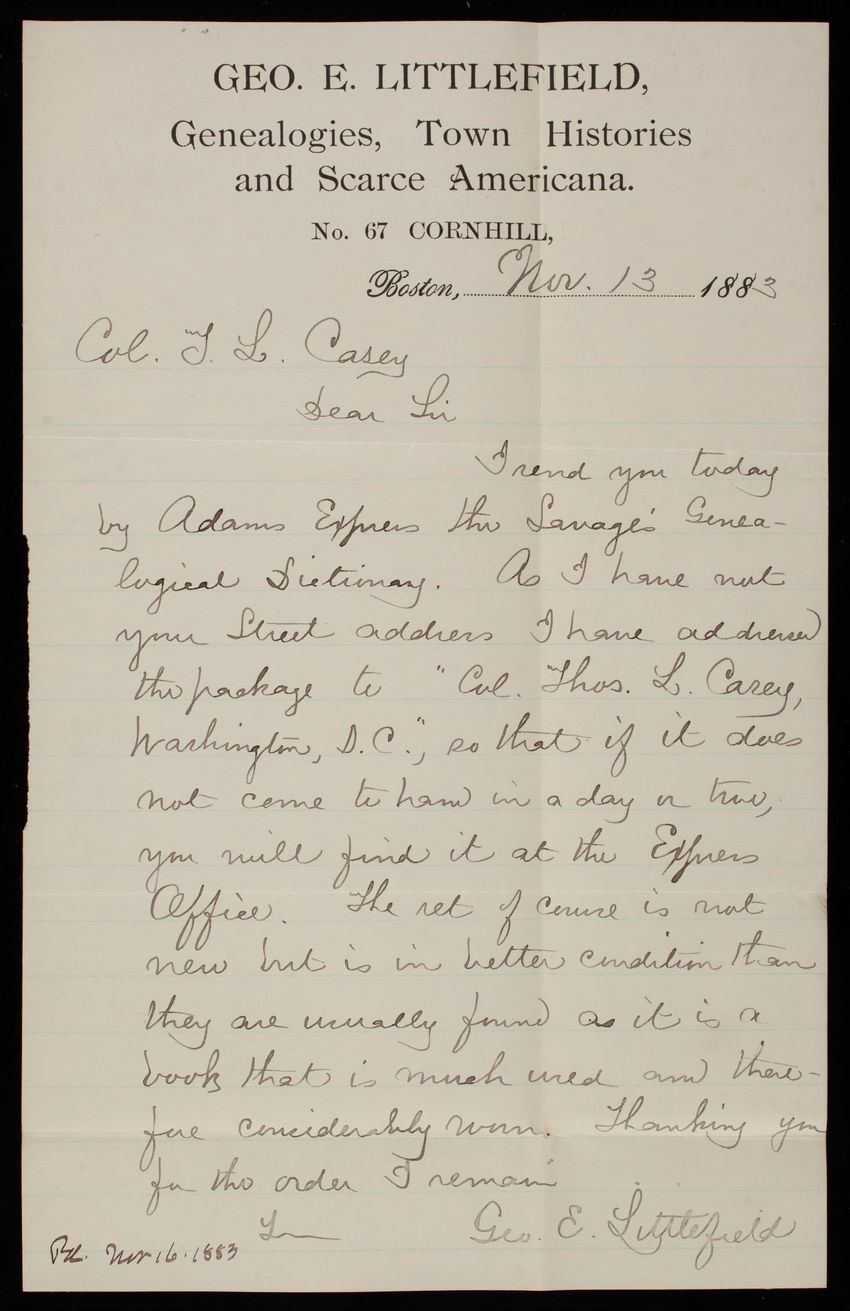 GEO. E. LITTLEFIELD,
Genealogies, Town Histories
and Scarce Americana.
No. 67 CORNHILL,
Boston, Nov. 13 1883
Col. T. L. Casey
Dear Sir
I send you today
by Adams Express the Savage's Genea-
logical Dictionary. As I have not
your Street address I have addressed
the package to "Col. Thos. L. Casey,
Washington, D.C.", so that if it does
not come to hand in a day or two,
you will find it at the Express
Office. The set of course is not
new but is in better condition than
they are usually found as it is a
book that is much used and there-
fore considerably worn. Thanking you
for the order I remain
Geo. E. Littlefield
Pd. Nov 16. 1883